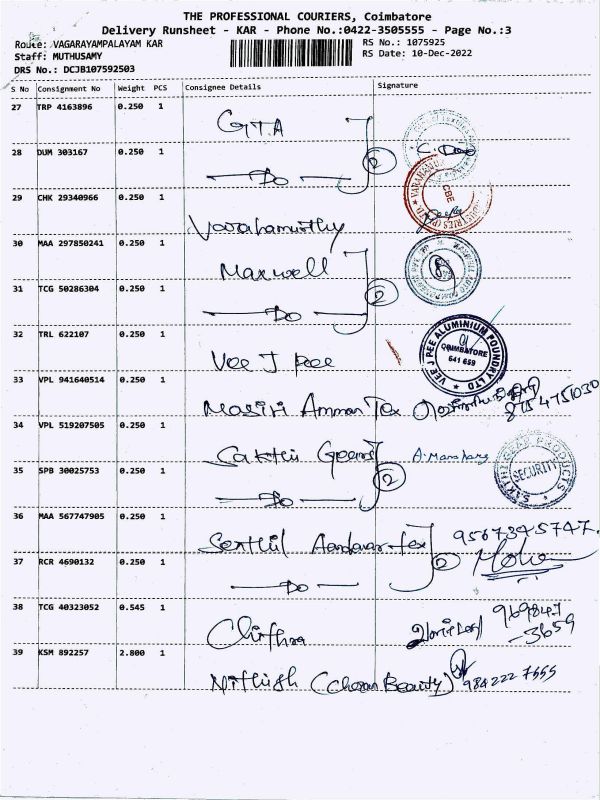 THE PROFESSIONAL COURIERS, Coimbatore
Delivery Runsheet - KAR - Phone No.:0422-3505555 - Page No.:3
Route: VAGARAYAMPALAYAM KAR
RS No.: 1075925
Staff: MUTHUSAMY
RS Date: 10-Dec-2022
DRS No.: DCJB107592503
S No Consignment No Weight PCS Consignee Details Signature
27 TRP 4163896 0.250 1
GTA
28 DUM 303167 0.250 1
Do 2
29 CHK 29340966 0.250 1
CBE
Varahamurthy
30 MAA 297850241 0.250 1
Maxwell
31 TCG 50286304 0.250 1
Do 2
32 TRL 622107 0.250 1
VEE J PEE ALUMINIUM FOUNDRY LTD
COIMBATORE
641 659
Vee J Pee
33 VPL 941640514 0.250 1
Masiri Amman Tex
34 VPL 519207505 0.250 1
Sakthi Gears
SAKTHI GEAR PRODUCTS
SECURITY
35 SPB 30025753 0.250 1
Do 2
36 MAA 567747905 0.250 1
Senthil Aandavar Tex 9567345747.
37 RCR 4690132 0.250 1
Do 2
38 TCG 40323052 0.545 1
Chithra 969847
-3659
39 KSM 892257 2.800 1
Nithish (Cheran Beauty) 984222 7555